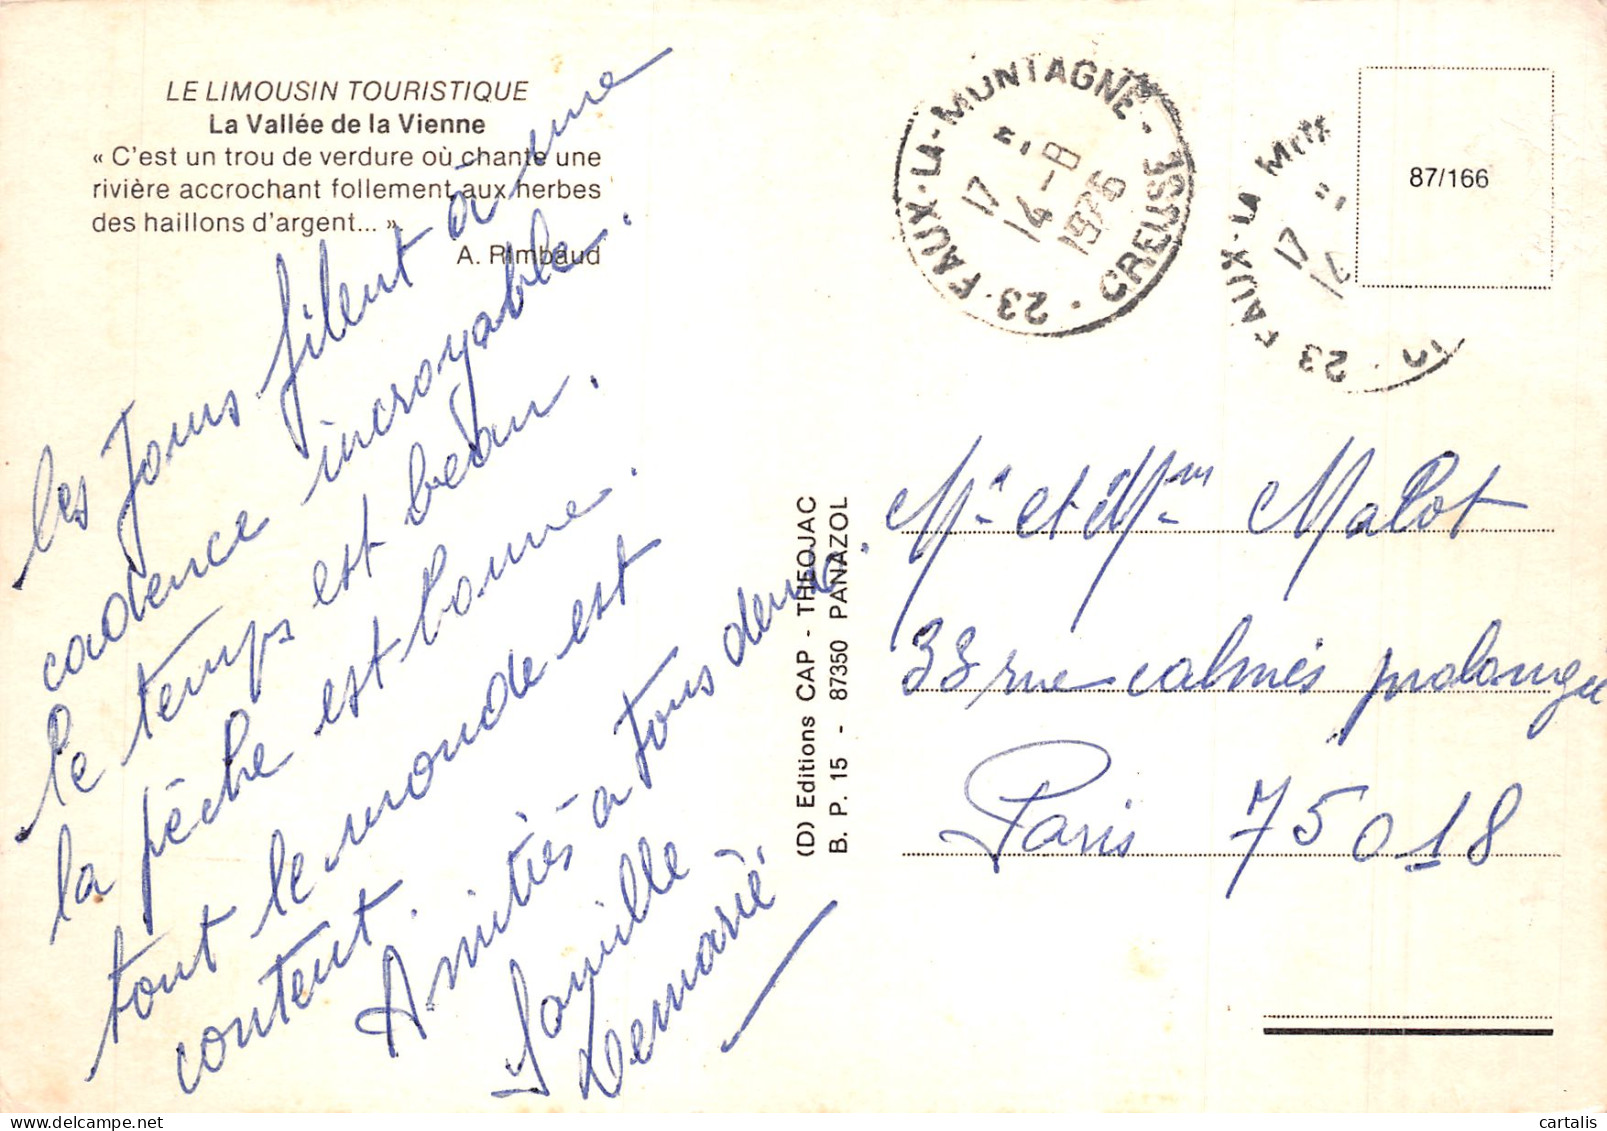 LE LIMOUSIN TOURISTIQUE
La Vallée de la Vienne
« C'est un trou de verdure où chante une
rivière accrochant follement aux herbes
des haillons d'argent... »
A. Rimbaud
les jours filent à une
cadence incroyable.
le temps est beau.
la pêche est bonne.
tout le monde est
content.
Amitiés à tous deux.
famille
Demarié.
(D) Editions CAP - THEOJAC
B. P. 15 - 87350 PANAZOL
23 FAUX-LA-MONTAGNE - CREUSE
17 H
14-8
1976
23 FAUX-LA MONT
17
87/166
Mr et Mme Malot
33 rue calmès prolongée
Paris 75018
cartalis